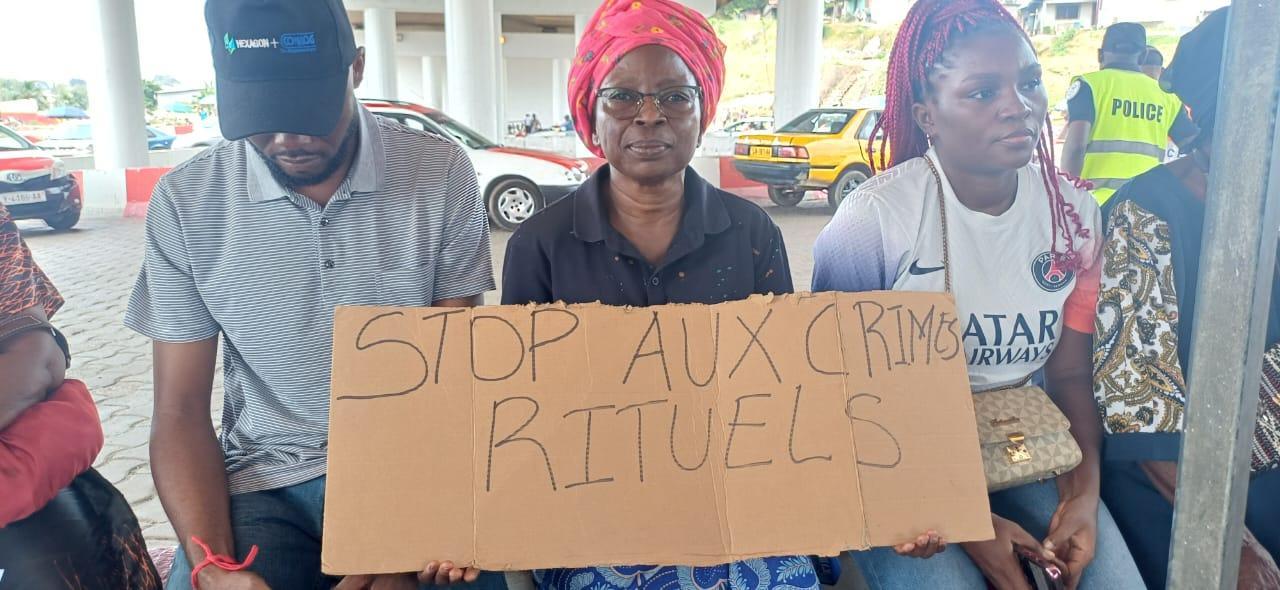 HEXAGON +
POLICE
STOP AUX CRIMES
RITUELS
PARIS
ATAR
IRWAYS